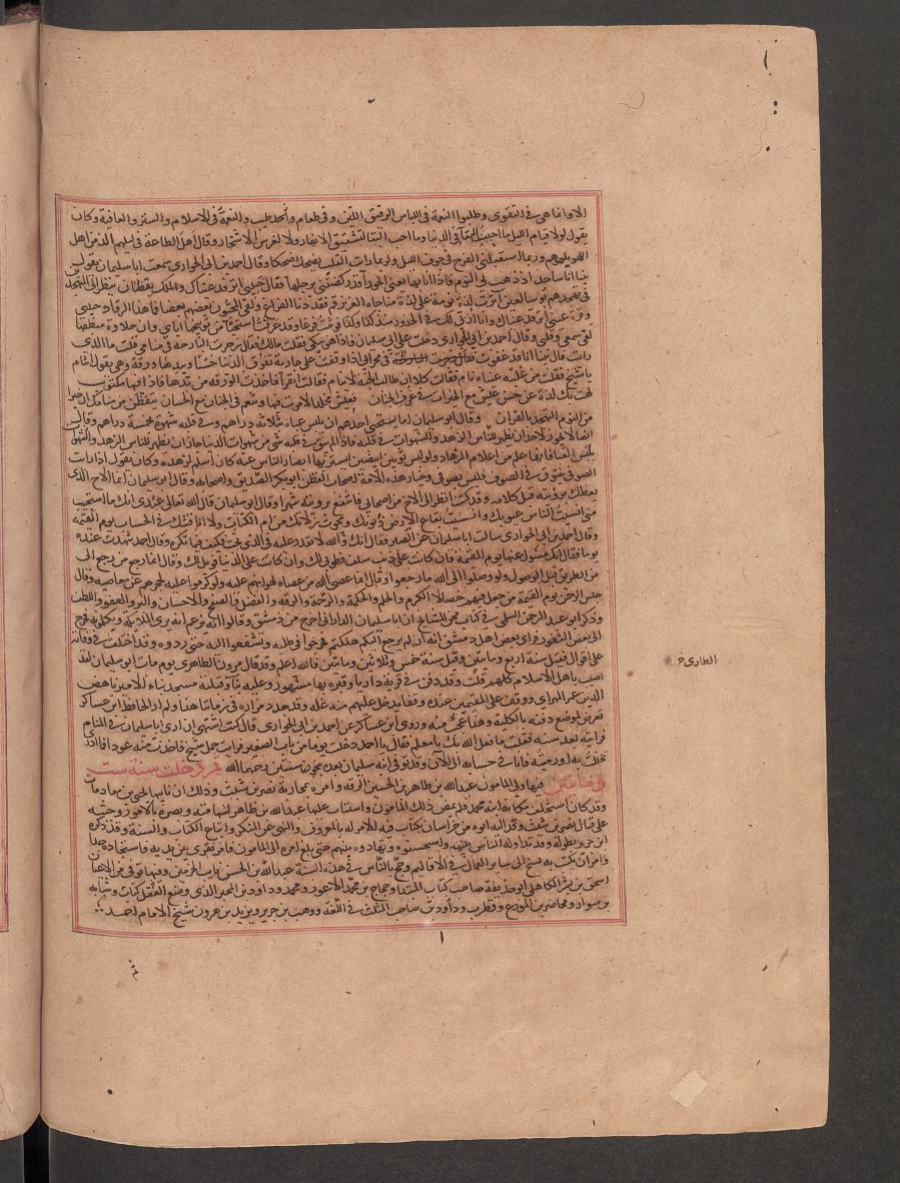 الا وانما هي في التقوى وطلبوا النعمة في اللباس الرقيق اللين وفي طعام طيب والنعمة في الاسلام والستر والعافية وكان
يقول لولا قيام الليل ما احببت البقا في الدنيا وما احب البقا لتشقيق الانهار ولا لغرس الاشجار وقال اهل الطاعة في ليلهم الذ من اهل
اللهو بلهوهم وربما استقبلني الفرح في جوف الليل وربما رايت القلب يضحك ضحكا وقال احمد بن ابي الحواري سمعت ابا سليمان يقول
بينا انا ساجد اذ ذهب بي النوم فاذا انا بها يعني الحورا قد ركضتني برجلها فقالت حبيبي اترقد عيناك والملك يقظان ينظر الى المتهجدين
في تهجدهم بوسا لعين اثرت لذة نومة على لذة مناجاة العزيز قم فقد دنا الفراغ ولقي المحبون بعضهم بعضا فما هذا الرقاد حبيبي
وقرة عيني اترقد عيناك وانا اربى لك في الخدور منذ كذا وكذا فوثبت فزعا وقد عرقت استحيا من توبيخها اياي وان حلاوة منطقها
لفي سمعي وقلبي وقال احمد بن ابي الحواري دخلت على ابي سليمان فاذا هو يبكي فقلت مالك فقال زجرت البارحة في منامي قلت ما الذي
زجرك قال بينا انا قد غفوت في محرابي اذ وقفت علي جارية تفوق الدنيا حسنا وبيدها ورقة وهي تقول اتنام
يا شيخ فقلت من غلبته عيناه نام فقالت كلا ان طالب الجنة لا ينام فقالت اتقرأ فاخذت الورقة من يدها فاذا فيها مكتوب
لهت بك لذة عن حسن عيش مع الخيرات في غرف الجنان تعيش مخلدا لا موت فيها وتنعم في الجنان مع الحسان تيقظ من منامك ان خيرا
من النوم التهجد بالقران وقال ابو سليمان اما يستحي احدهم ان يلبس عباة بثلاثة دراهم وفي قلبه شهوة بخمسة دراهم وقال
ايضا لا يجوز لاحد ان يظهر للناس الزهد والشهوات في قلبه فاذا لم يبق في قلبه شي من شهوات الدنيا جاز ان يظهر للناس الزهد
بلبس العبا فانها علم من اعلام الزهاد ولو لبس ثوبين ابيضين ليستر بهما ابصار الناس عنه كان اسلم لزهده وكان يقول اذا رايت
الصوفي يتنوق في الصوف فليس بصوفي وخيار هذه الامة اصحاب القطن ابو بكر الصديق واصحابه وقال ابو سليمان انما الاخ الذي
يعظك برؤيته قبل كلامه وقد كنت انظر الى الاخ من اصحابي فانتفع برؤيته شهرا وقال ابو سليمان قال الله تعالى عبدي انك ما استحييت
مني انسيت الناس عيوبك وانسيت بقاع الارض ذنوبك ومحوت زلاتك من ام الكتاب ولا اناقشك في الحساب يوم القيمة
وقال احمد بن ابي الحواري سالت ابا سليمان عن الصبر فقال انك والله لا تقدر عليه في الذي تحب فكيف فيما تكره وقال احمد تنهدت عنده
يوما فقال انك مسئول عنها يوم القيمة فان كانت على ذنب سلف فطوبى لك وان كانت على الدنيا فويل لك وقال انما رجع من رجع الى
من الطريق قبل الوصول ولو وصلوا الى الله ما رجعوا وقال انما عصى الله من عصاه لهوانهم عليه ولو كرموا عليه لحجزهم عن معاصيه وقال
جلساء الرحمن يوم القيمة من جعل فيهم خصالا الكرم والحلم والحكمة والرحمة والرقة والفضل والصفح والاحسان والبر والعفو واللطف
وذكر ابو عبد الرحمن السلمي في كتاب محن المشايخ ان ابا سليمان الداراني اخرج من دمشق وقالوا انه يزعم انه يرى الملائكة ويكلمونه فخرج
الى بعض الثغور فراى بعض اهل دمشق انه ان لم يرجع اليكم هلكتم فخرجوا في طلبه وتشفعوا اليه حتى ردوه وقد اختلف في وفاته
على اقوال فقيل سنة اربع ومايتين وقيل سنة خمس وثلاثين ومايتين فالله اعلم وقد قال مرون الطاهري يوم مات ابو سليمان لقد
اصيب به اهل الاسلام كلهم قلت وقد دفن في قرية داريا وقبره بها مشهور وعليه بنا وقبلته مسجد بناه الامير ناهض
الدين عمر المهراني ووقف على المقيمين عنده وقفا يدخل عليهم منه غلة وقد جدد مزاره في زماننا هذا ولم ار الحافظ ابن عساكر
تعرض لموضع دفنه بالكلية وهذا عجيب منه وروى ابن عساكر عن احمد بن ابي الحواري قال كنت اشتهي ان ارى ابا سليمان في المنام
فرايته بعد سنة فقلت ما فعل الله بك يا معلم فقال يا احمد دخلت يوما من باب الصغير فرايت حمل شيخ فاخذت منه عودا فما ادري
تخللت به او رميته فانا في حسابه الى الان وقد توفي ابنه سليمان بعده بنحو من سنتين رحمهما الله ثم دخلت سنة ست
ومايتين فيها ولى المامون عبد الله بن طاهر بن الحسين الرقة وامره بمحاربة نصر بن شبث وذلك ان نايبها يحيى بن معاذ مات
وقد كان استخلف مكانه ابنه محمد فلم يمض ذلك المامون واستناب عليها عبد الله بن طاهر لشهامته وبصره بالامور وحثه
على قتال نصر بن شبث وقد كتب اليه ابوه من خراسان بكتاب فيه الامر له بالمعروف والنهي عن المنكر واتباع الكتاب والسنة وقد ذكره
ابن جرير بطوله وقد تداوله الناس بينهم واستحسنوه وتهادوه بينهم حتى بلغ امره الى المامون فامر فقرى بين يديه فاستجاده جدا
وامر ان يكتب به نسخ الى ساير العمال في الاقاليم وحج بالناس في هذه السنة عبد الله بن الحسن نايب الحرمين وفيها توفي من الاعيان
اسحق بن بشر الكاهلي ابو حذيفة صاحب كتاب المبتدا وحجاج بن محمد الاعور ومحمد وداود بن المحبر الذي وضع العقل كتاب وشبابة
بن سوار ومحاضر بن المورع وقطرب وداود بن صاحب المثلث في اللغة ووهب بن جرير ويزيد بن هرون شيخ الامام احمد
الطاري خ